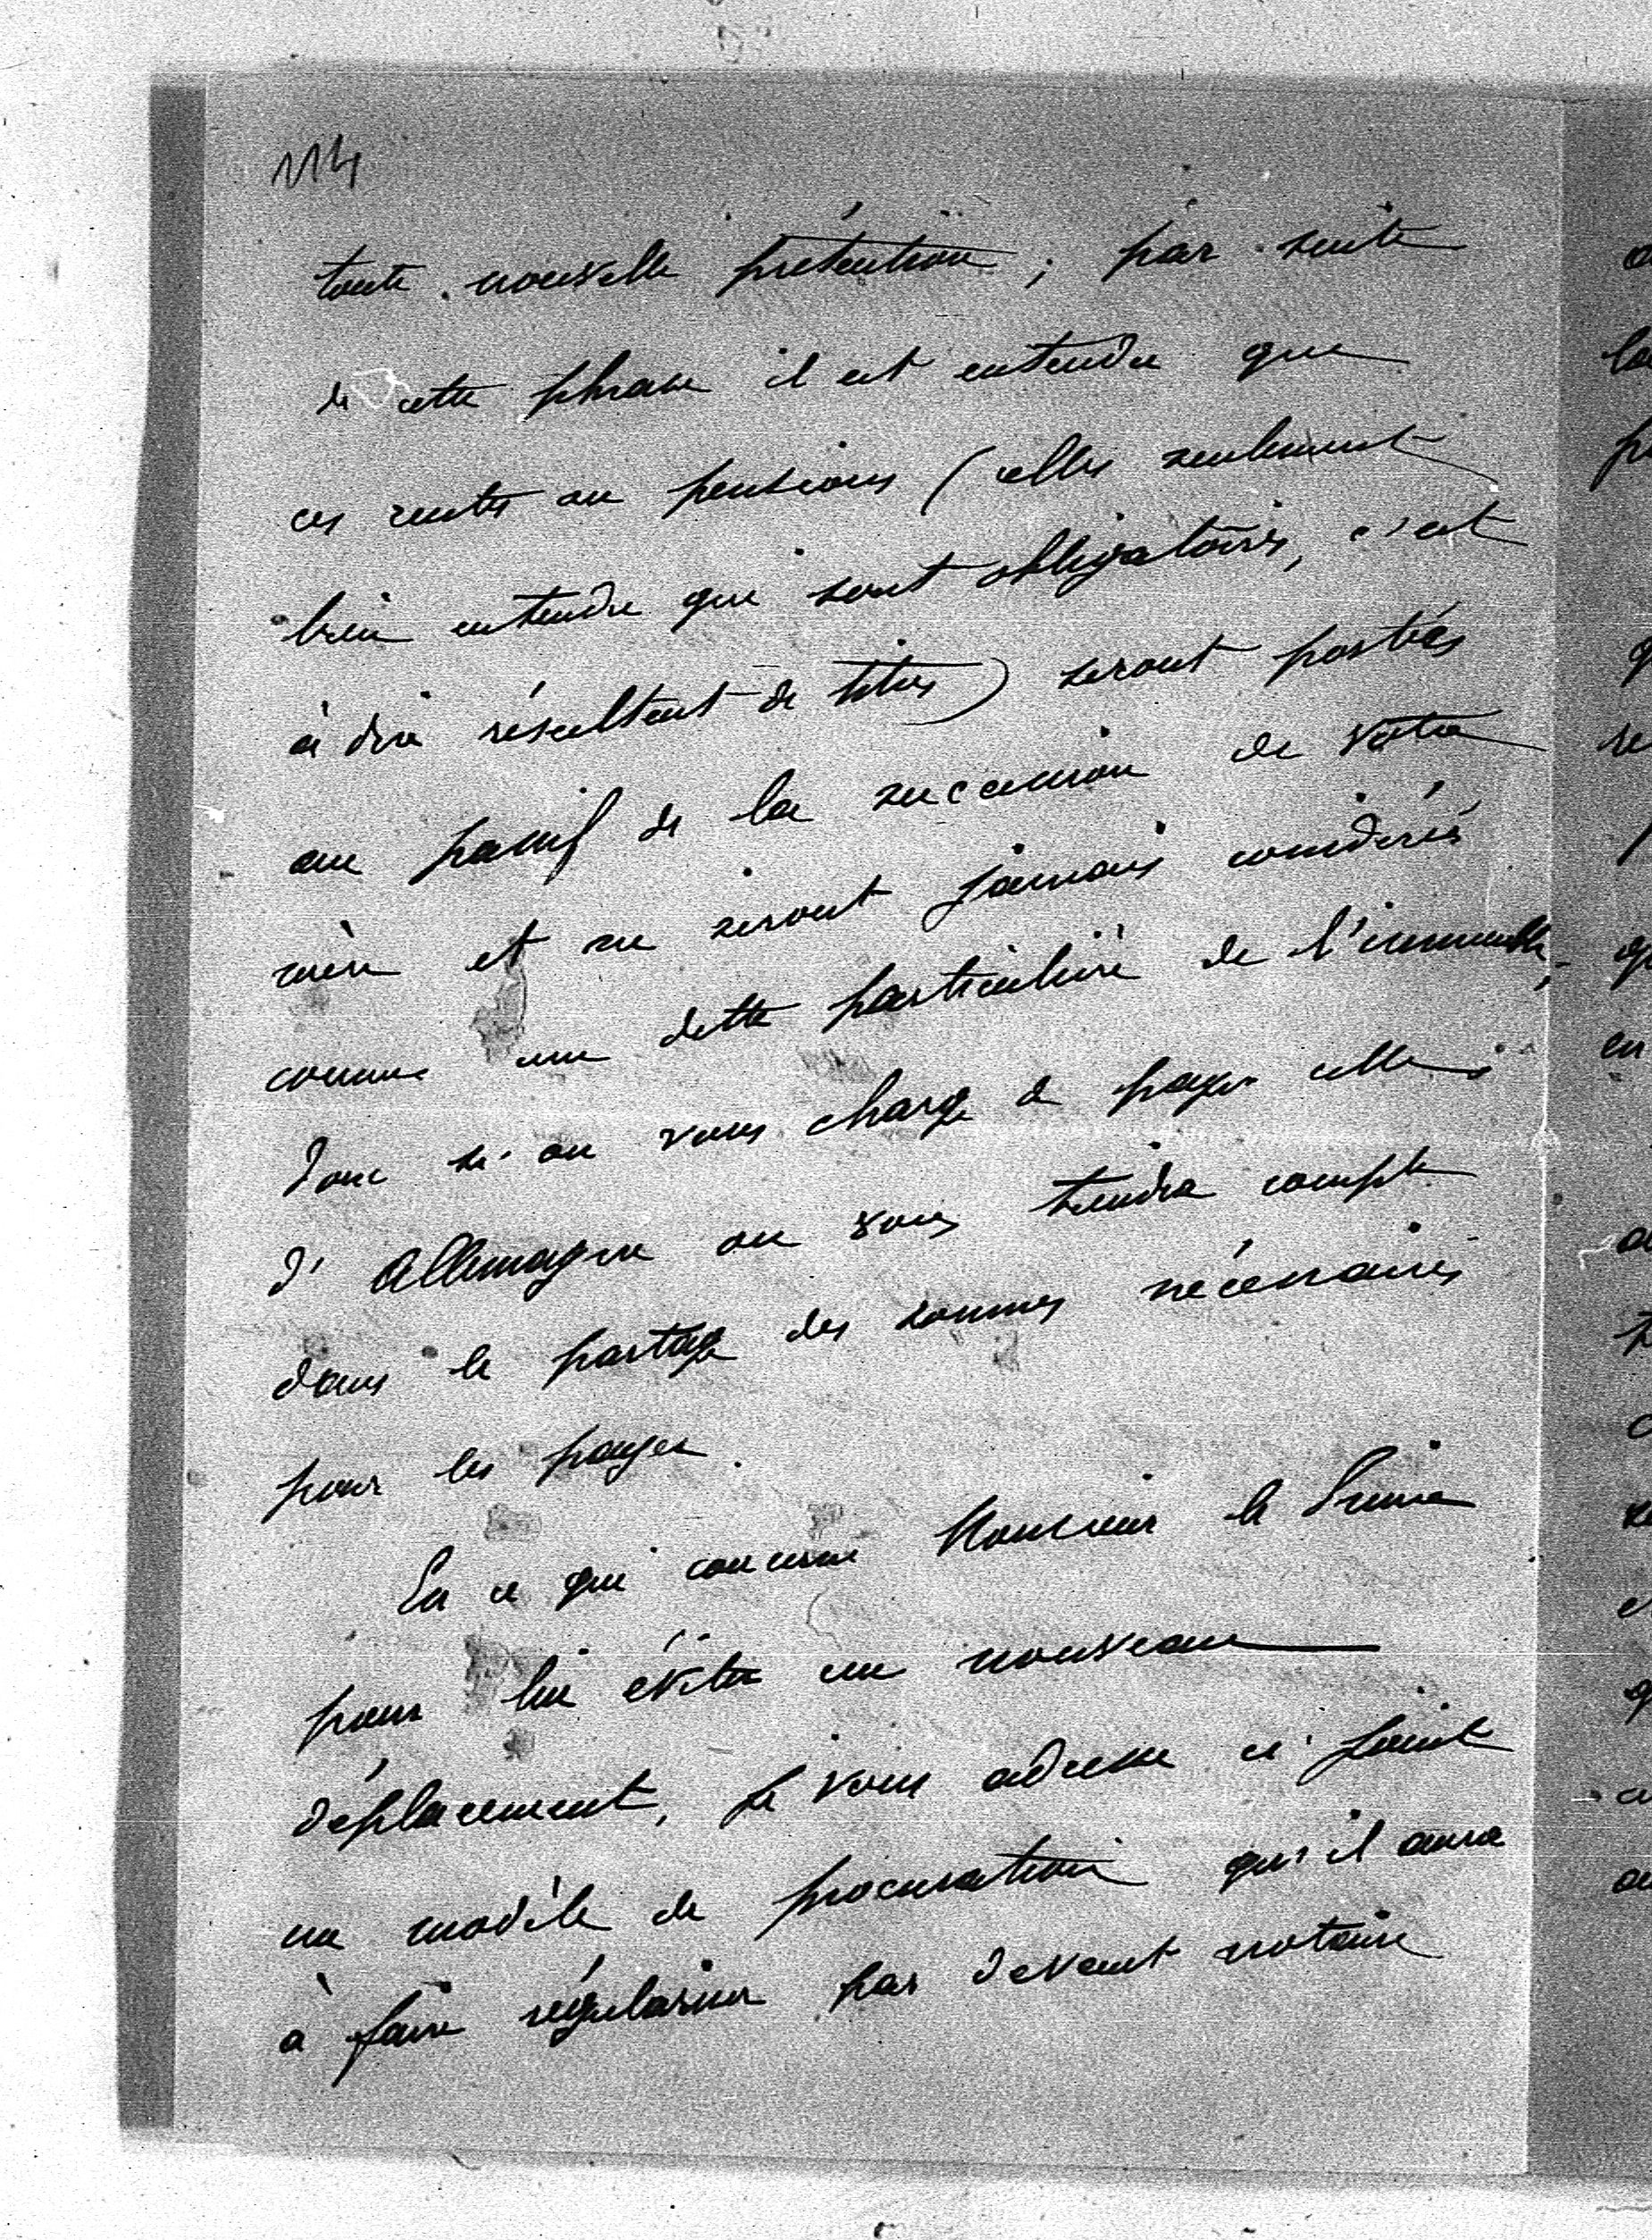 114
toute nouvelle prétention ; par suite
de cette phrase il est entendu que
ces rentes ou pensions (celles seulement
bien entendu qui sont obligatoires, c'est
à dire résultent de titres) seront portées
au passif de la succession de votre
mère et ne seront jamais considérés
comme une dette particulière de l'immeuble,
donc si on vous charge de payer celles
d'Allemagne on vous tiendra compte
dans le partage des sommes nécessaires
pour les payer.
En ce qui concerne Monsieur le Prince
pour lui éviter un nouveau
déplacement, je vous adresse ci-joint
un modèle de procuration qu'il aura
à faire régulariser par devant notaire